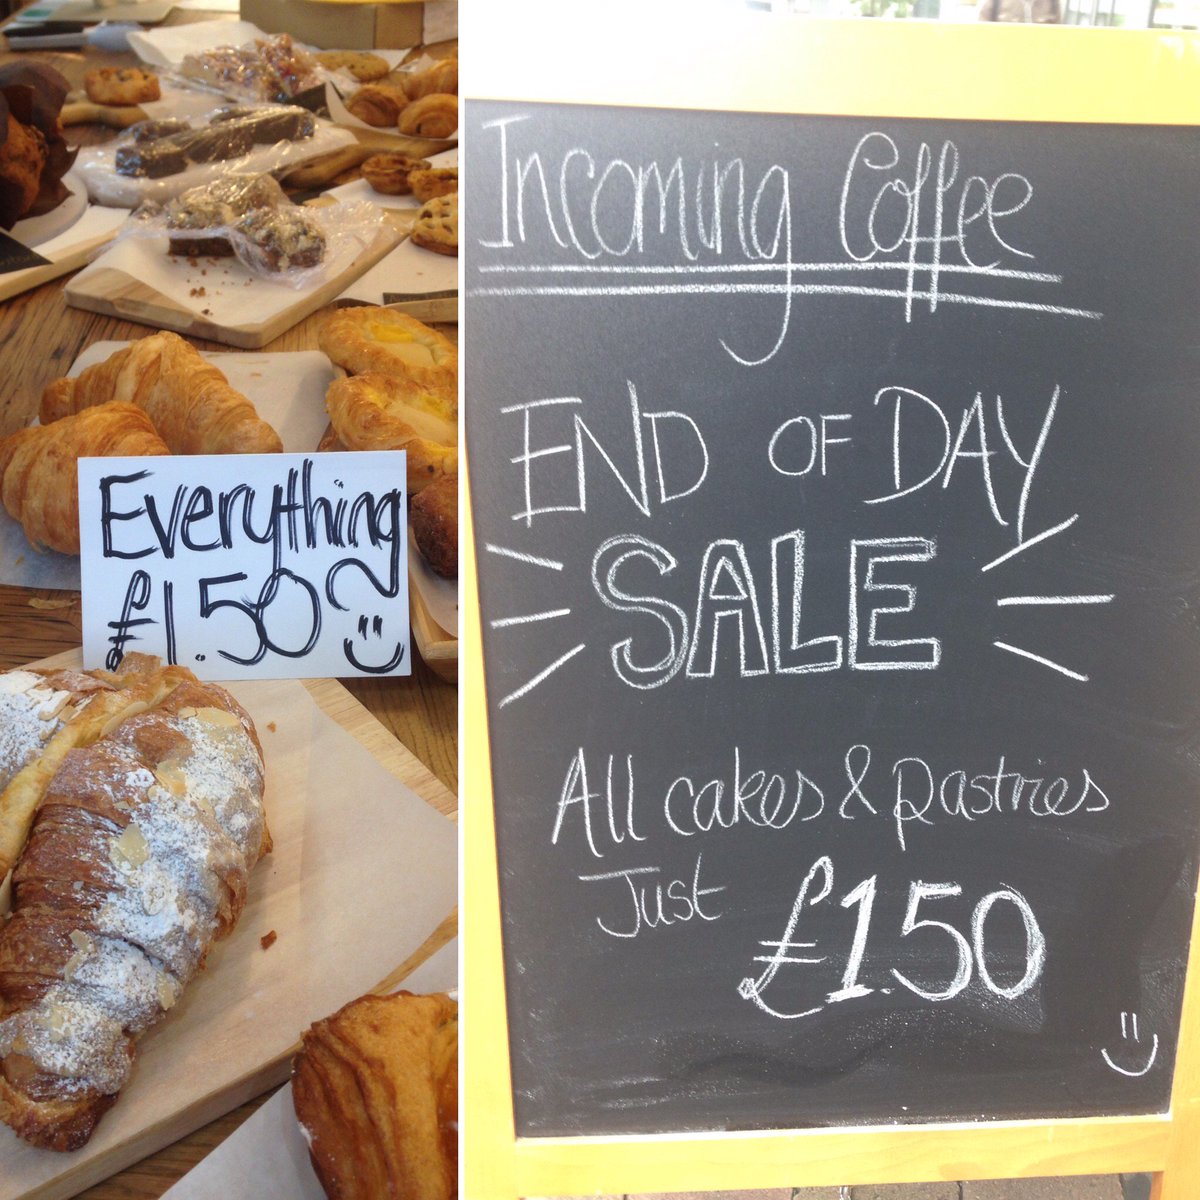 Everything
£1.50
Incoming Coffee
END OF DAY
SALE
All cakes & pastries
Just £1.50